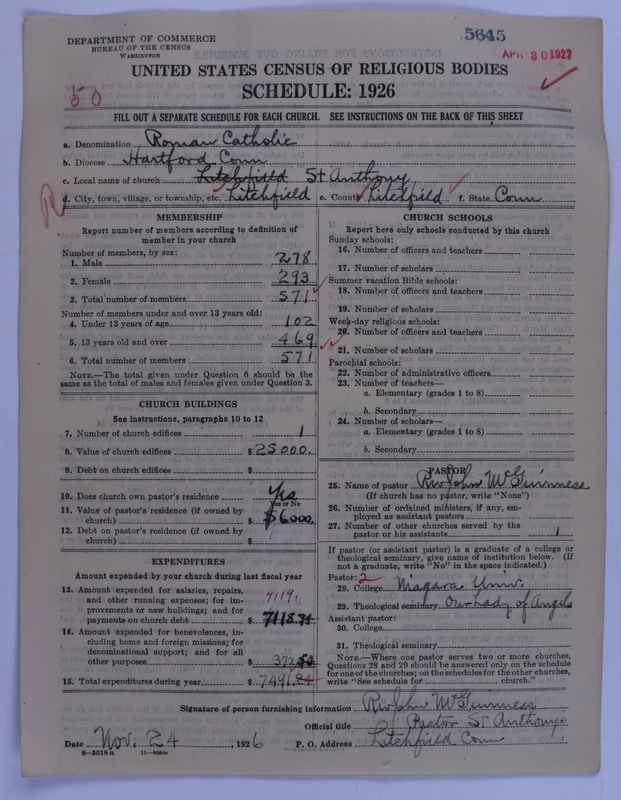 DEPARTMENT OF COMMERCE
BUREAU OF THE CENSUS
WASHINGTON
5645
APR 30 1927
UNITED STATES CENSUS OF RELIGIOUS BODIES
SCHEDULE: 1926
50
FILL OUT A SEPARATE SCHEDULE FOR EACH CHURCH. SEE INSTRUCTIONS ON THE BACK OF THIS SHEET
a. Denomination Roman Catholic
b. Diocese Hartford Conn
c. Local name of church Litchfield St Anthony
d. City, town, village, or township, etc. Litchfield e. County Litchfield f. State Conn
MEMBERSHIP
Report number of members according to definition of
member in your church
Number of members, by sex:
1. Male 278
2. Female 293
3. Total number of members 571
Number of members under and over 13 years old:
4. Under 13 years of age 102
5. 13 years old and over 469
6. Total number of members 571
NOTE.—The total given under Question 6 should be the
same as the total of males and females given under Question 3.
CHURCH BUILDINGS
See instructions, paragraphs 10 to 12
7. Number of church edifices 1
8. Value of church edifices $ 25000.
9. Debt on church edifices $
10. Does church own pastor's residence Yes
Yes or No
11. Value of pastor's residence (if owned by
church) $ $6000.
12. Debt on pastor's residence (if owned by
church) $
EXPENDITURES
Amount expended by your church during last fiscal year
13. Amount expended for salaries, repairs,
and other running expenses; for im-
provements or new buildings; and for
payments on church debt $ 7119.
14. Amount expended for benevolences, in-
cluding home and foreign missions; for
denominational support; and for all
other purposes $ 372
15. Total expenditures during year $ 7491.24
CHURCH SCHOOLS
Report here only schools conducted by this church
Sunday schools:
16. Number of officers and teachers
17. Number of scholars
Summer vacation Bible schools:
18. Number of officers and teachers
19. Number of scholars
Week-day religious schools:
20. Number of officers and teachers
21. Number of scholars
Parochial schools:
22. Number of administrative officers
23. Number of teachers—
a. Elementary (grades 1 to 8)
b. Secondary
24. Number of scholars—
a. Elementary (grades 1 to 8)
b. Secondary
PASTOR
25. Name of pastor Rev John McGuinness
(If church has no pastor, write "None")
26. Number of ordained ministers, if any, em-
ployed as assistant pastors
27. Number of other churches served by the
pastor or his assistants 1
If pastor (or assistant pastor) is a graduate of a college or
theological seminary, give name of institution below. (If
not a graduate, write "No" in the space indicated.)
Pastor: 2
28. College Niagara Univ.
29. Theological seminary Our Lady of Angels
Assistant pastor:
30. College
31. Theological seminary
NOTE.—Where one pastor serves two or more churches,
Questions 28 and 29 should be answered only on the schedule
for one of the churches; on the schedules for the other churches,
write "See schedule for church."
Signature of person furnishing information Rev John McGuinness
Official title Pastor St Anthonys
Date Nov. 24, 1926 P. O. Address Litchfield Conn